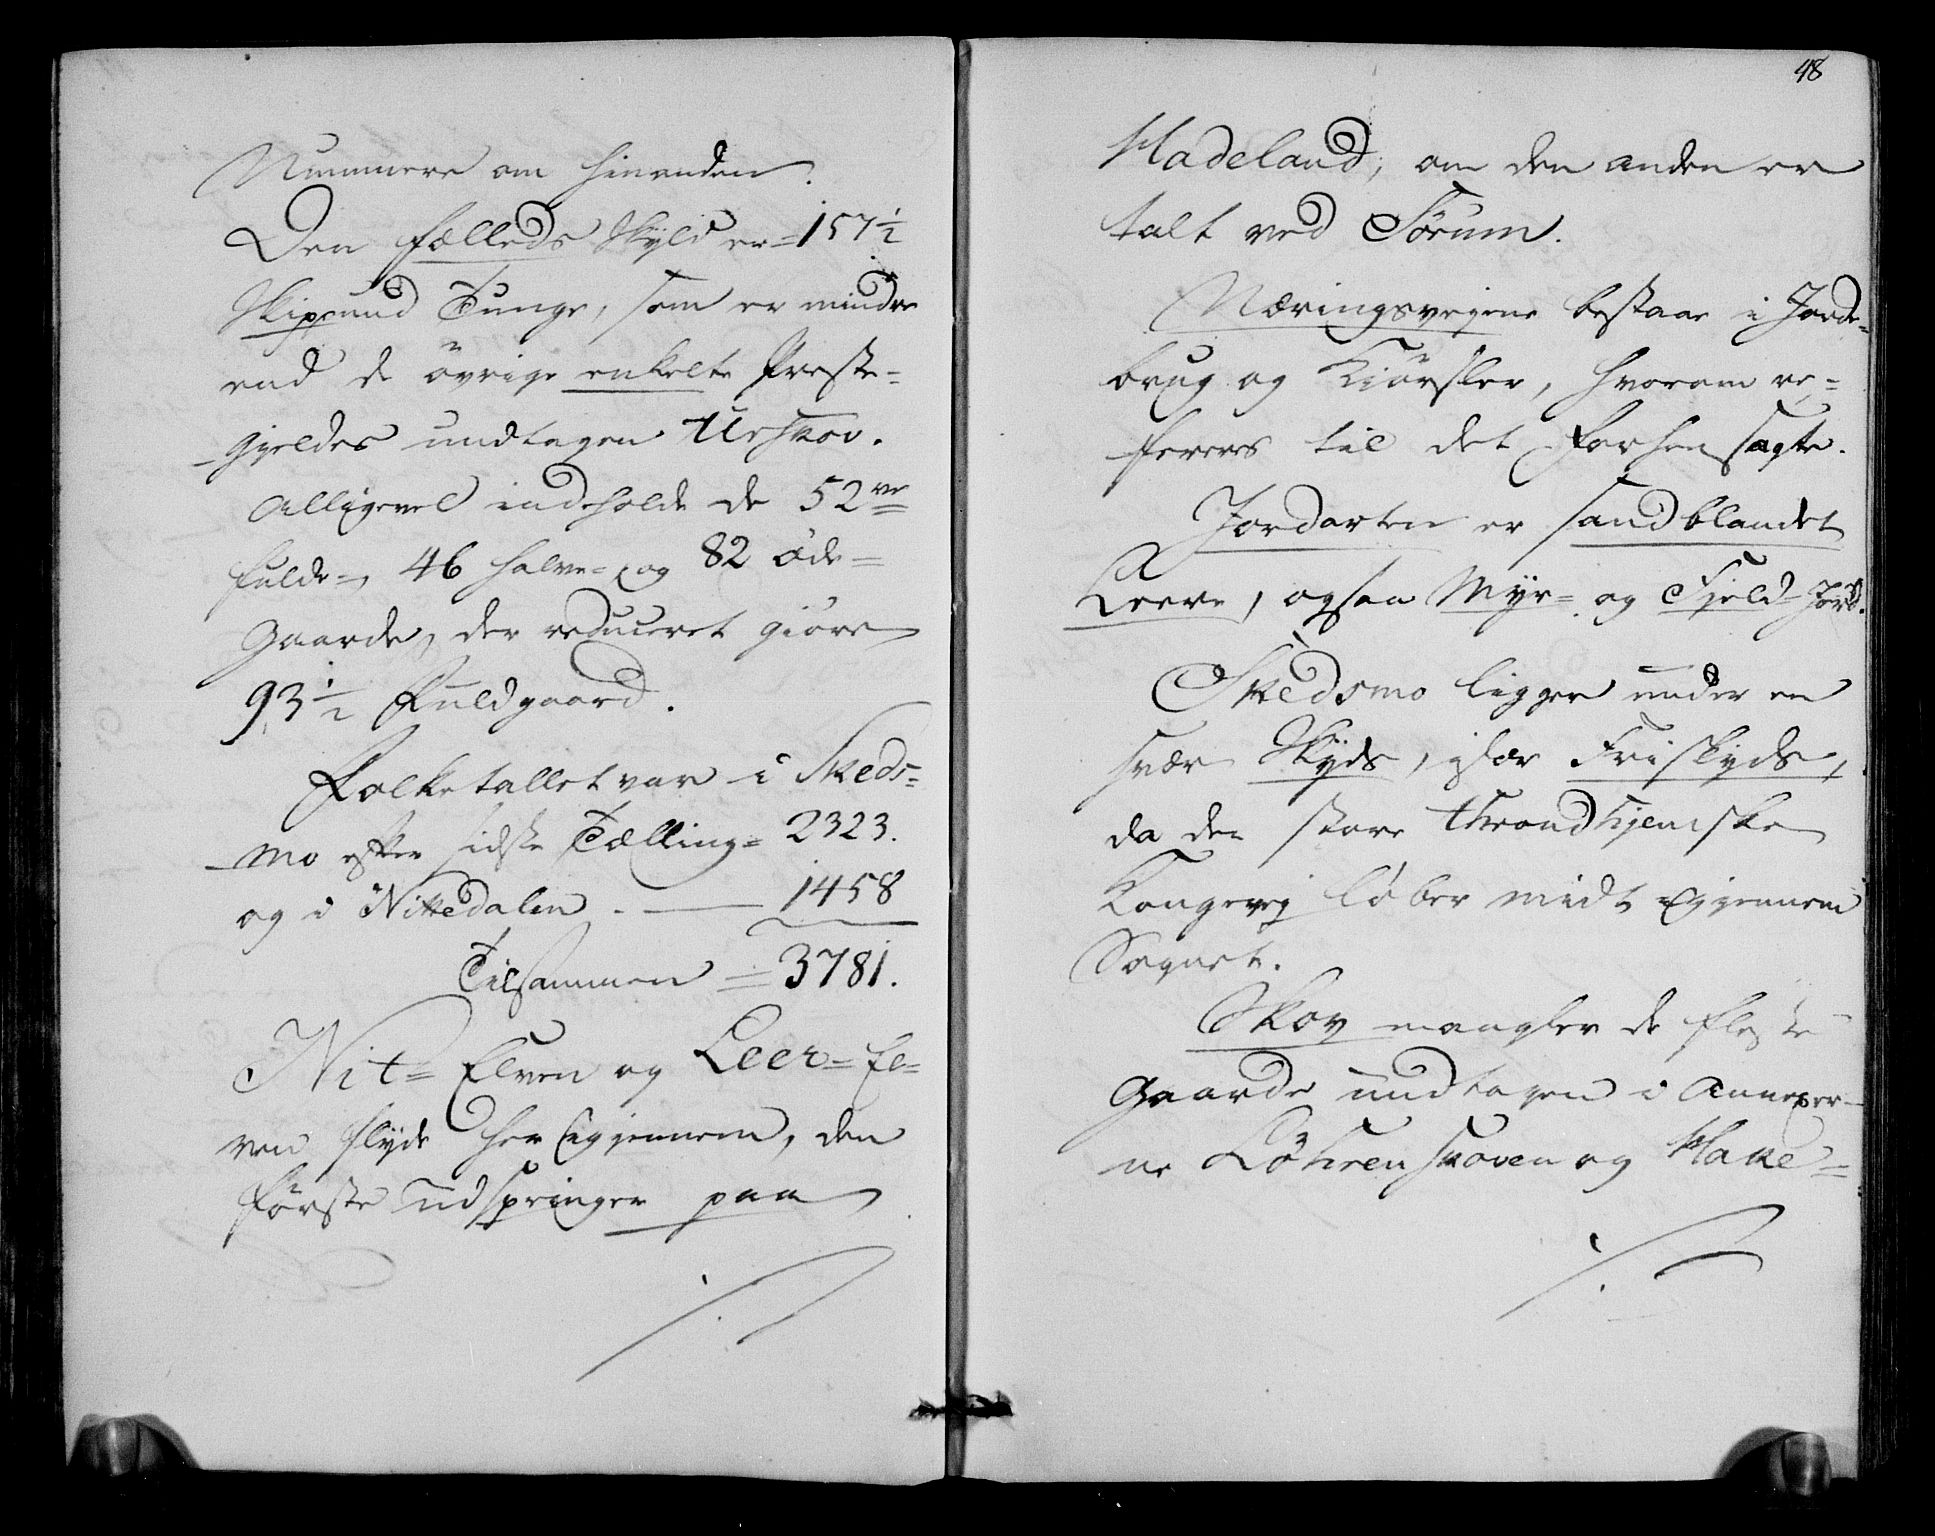 Nummere om hinanden.
Den fælleds Skyld er = 157 1/2
Skippund Tunge, som er mindre
end de øvrige enkelte Præste-
gjeldes undtagen Urskov.
Alligevel indeholde de 52ve
fulde-, 46 halve- og 82 öde-
Gaarde, der reduceret giöre
93 1/2 Fuldgaard.
Folketallet var i Skeds-
mo efter sidste Tælling = 2323.
og i Nittedalen . — 1458
Tilsammen = 3781.
Nit- Elven og Leer- El-
ven flyde her igjennem, den
förste udspringer paa
48
Hadeland, om den anden er
talt ved Sörum.
Næringsvejene bestaae i Jorde-
brug og Kiörsler, hvorom re-
fereres til det forhen sagte.
Jordarten er sandblandet
Leere, ogsaa Myr- og Fjeld-Jord.
Skedsmo ligger under en
svær Skyds, især Friskyds,
da den store throndhjemske
Kongevej löber midt igjennem
Sognet.
Skov mangler de fleste
Gaarde undtagen i Annexer-
ne Löhrenskoven og Hake-